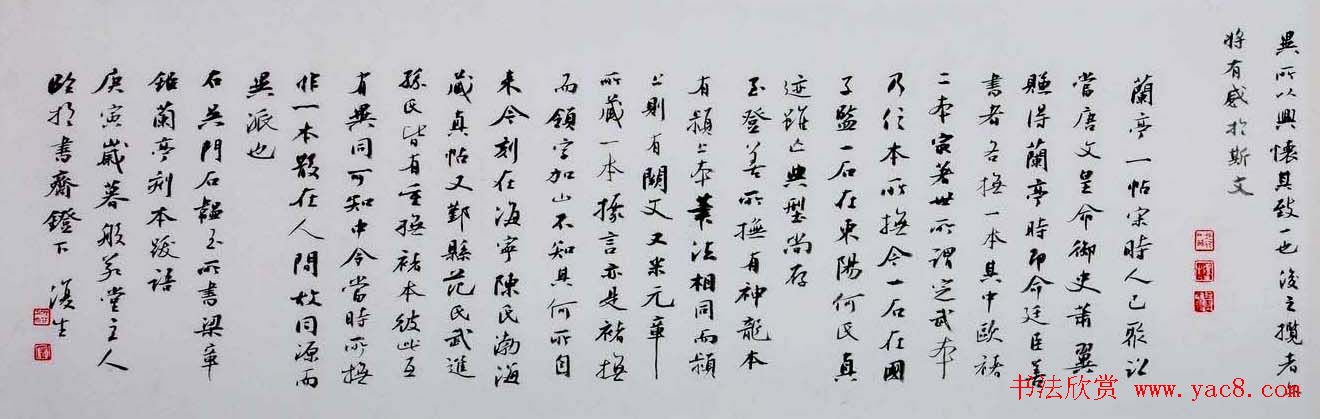 異所以興懷其致一也後之攬者亦
將有感於斯文
蘭亭一帖宋時人已聚訟
當唐文皇命御史蕭翼
賺得蘭亭時即命廷臣善
書者各撫一本其中歐褚
二本寅著世所謂定武本
乃經本所撫今一石在國
子監一石在東陽何氏真
迹雖亡典型尚存
至登善所撫有神龍本
有潁上本筆法相同而潁
上則有闕文又米元章
所藏一本據言亦是褚撫
而領字加山不知其何所自
来今刻在海寧陳氏渤海
藏真帖又鄞縣范氏武進
孫氏皆有重撫褚本彼此互
有異同可知中令當時所撫
非一本散在人間故同源而
異派也
右吳門石韞玉所書梁章
鉅蘭亭刻本跋語
庚寅歲暮般若堂主人
書齋鐙下 漢生
书法欣赏 www.yac8.com